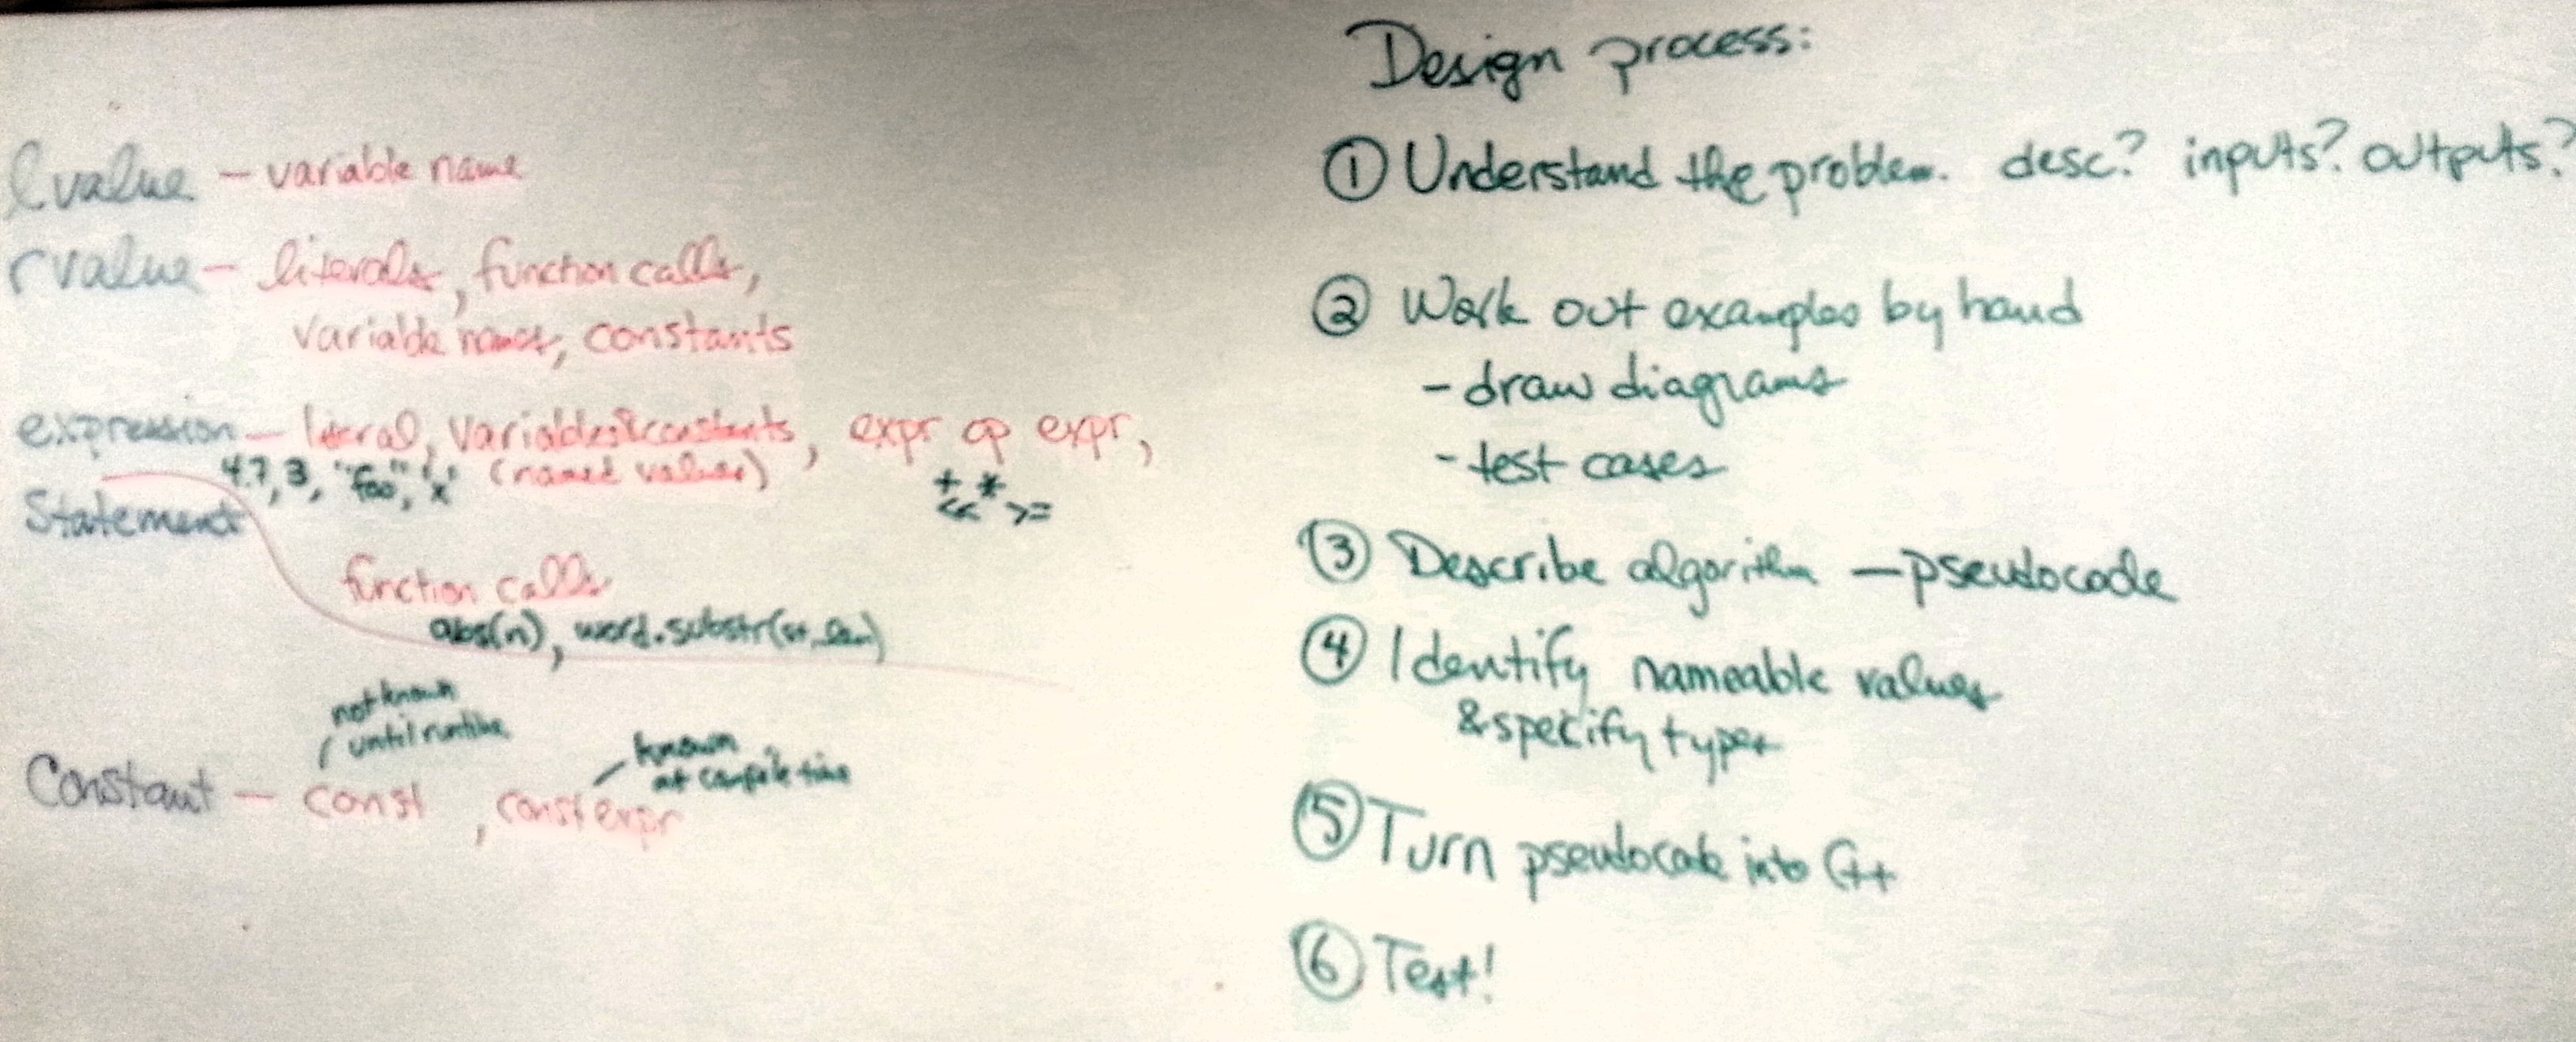 lvalue - variable name
rvalue - literals, function calls,
variable names, constants
expression - literal, variables & constants, expr op expr,
4.7, 3, "foo", 'x' (named values)
+ *
<< >=
Statement
function calls
abs(n), word.substr(st, len)
not known
until runtime
known
at compile time
Constant - const, constexpr
Design process:
① Understand the problem. desc? inputs? outputs?
② Work out examples by hand
- draw diagrams
- test cases
③ Describe algorithm - pseudocode
④ Identify nameable values
& specify types
⑤ Turn pseudocode into C++
⑥ Test!